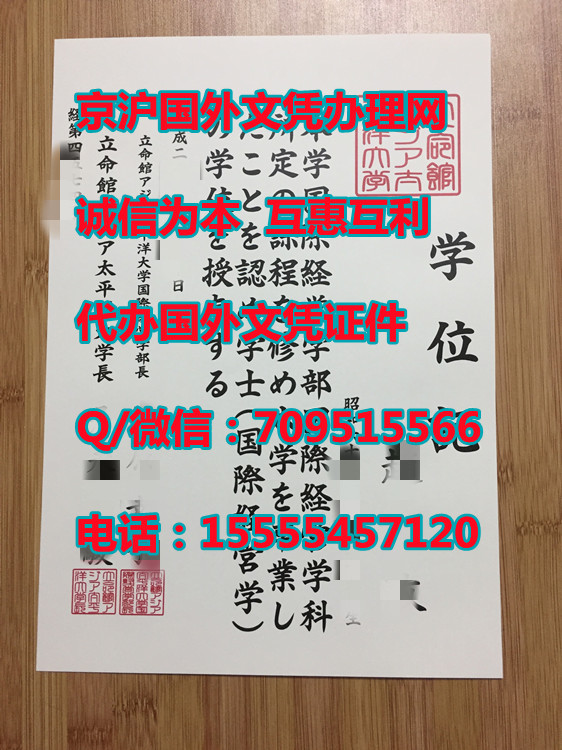 京沪国外文凭办理网
诚信为本 互惠互利
代办国外文凭证件
Q/微信：709515566
电话：15555457120
学位記
昭和
生
本学国際経営学部国際経営学科
所定の課程を修め本学を卒業し
たことを認め学士(国際経営学)
の学位を授与する
成二
日
立命館アジア太平洋大学国際経営学部長
立命館アジア太平洋大学長
経第四